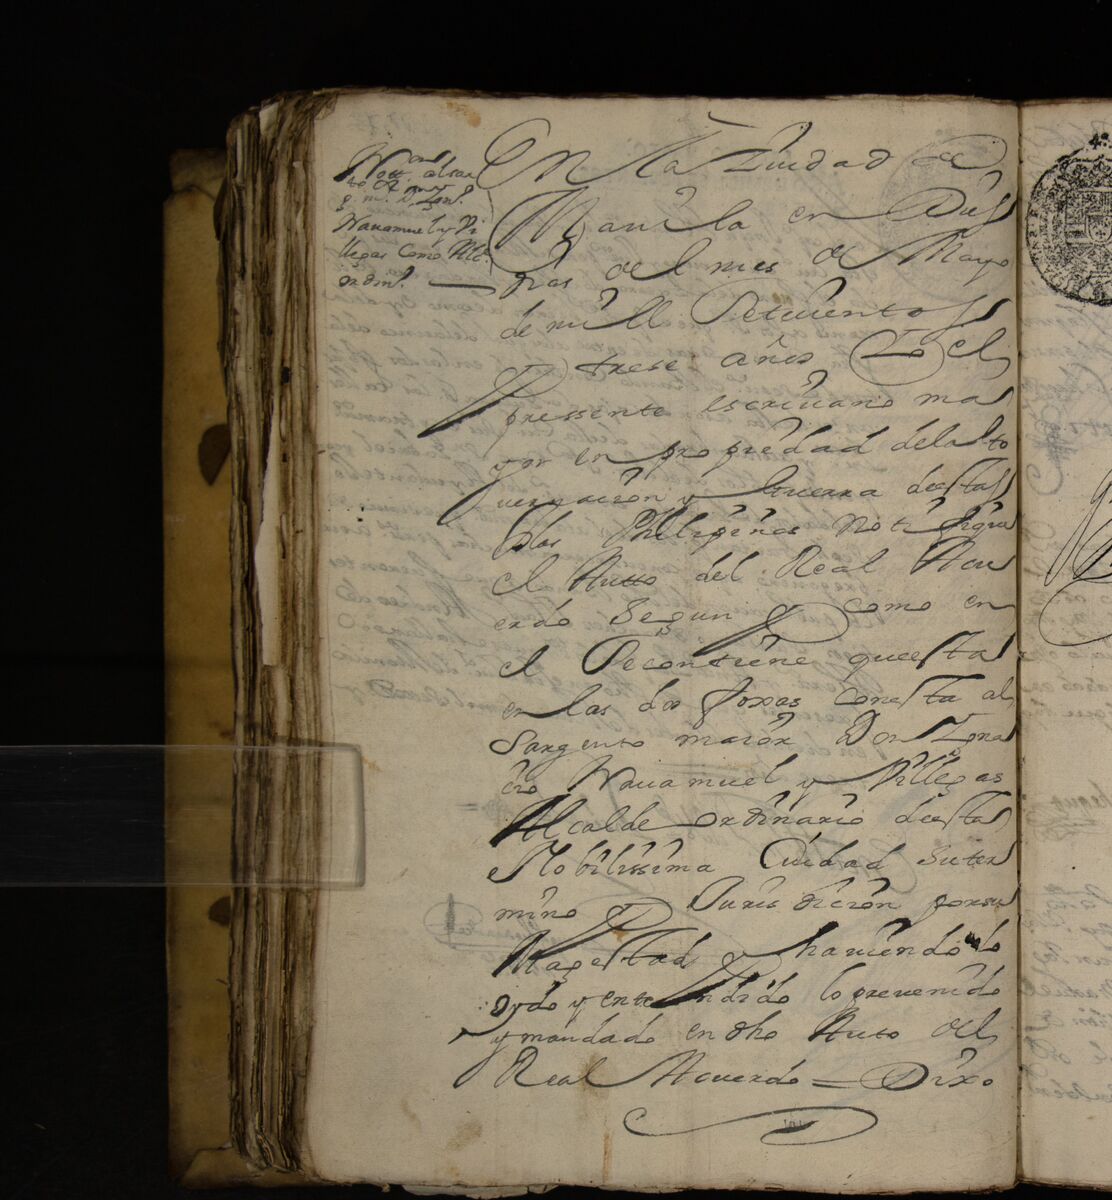 Nott.on al sar
to m.r
g. m. D. Ign.o
Navamuel y Vi
llegas Como Alc.
ordin.o
En la Ziudad de
Manila en Dies
dias del mes de Mayo
de mill Setecientos
y trese años Yo el
pressente escrivano ma
yor en propiedad de la Go
vernacion y Guerra de estas
Yslas Philipinas Notifique
el Autto del Real Acu
erdo Segun y como en
el Se contiene que esta
en las dos foxas con esta al
Sargento maior Don Ygna
cio Navamuel y Villegas
Alcalde ordinario de esta
Nobilissima Ciudad su ter
mino y Jurisdicion por su
Magestad y haviendolo
oydo y entendido lo prevenido
y mandado en dho Auto del
Real Acuerdo = Dixo